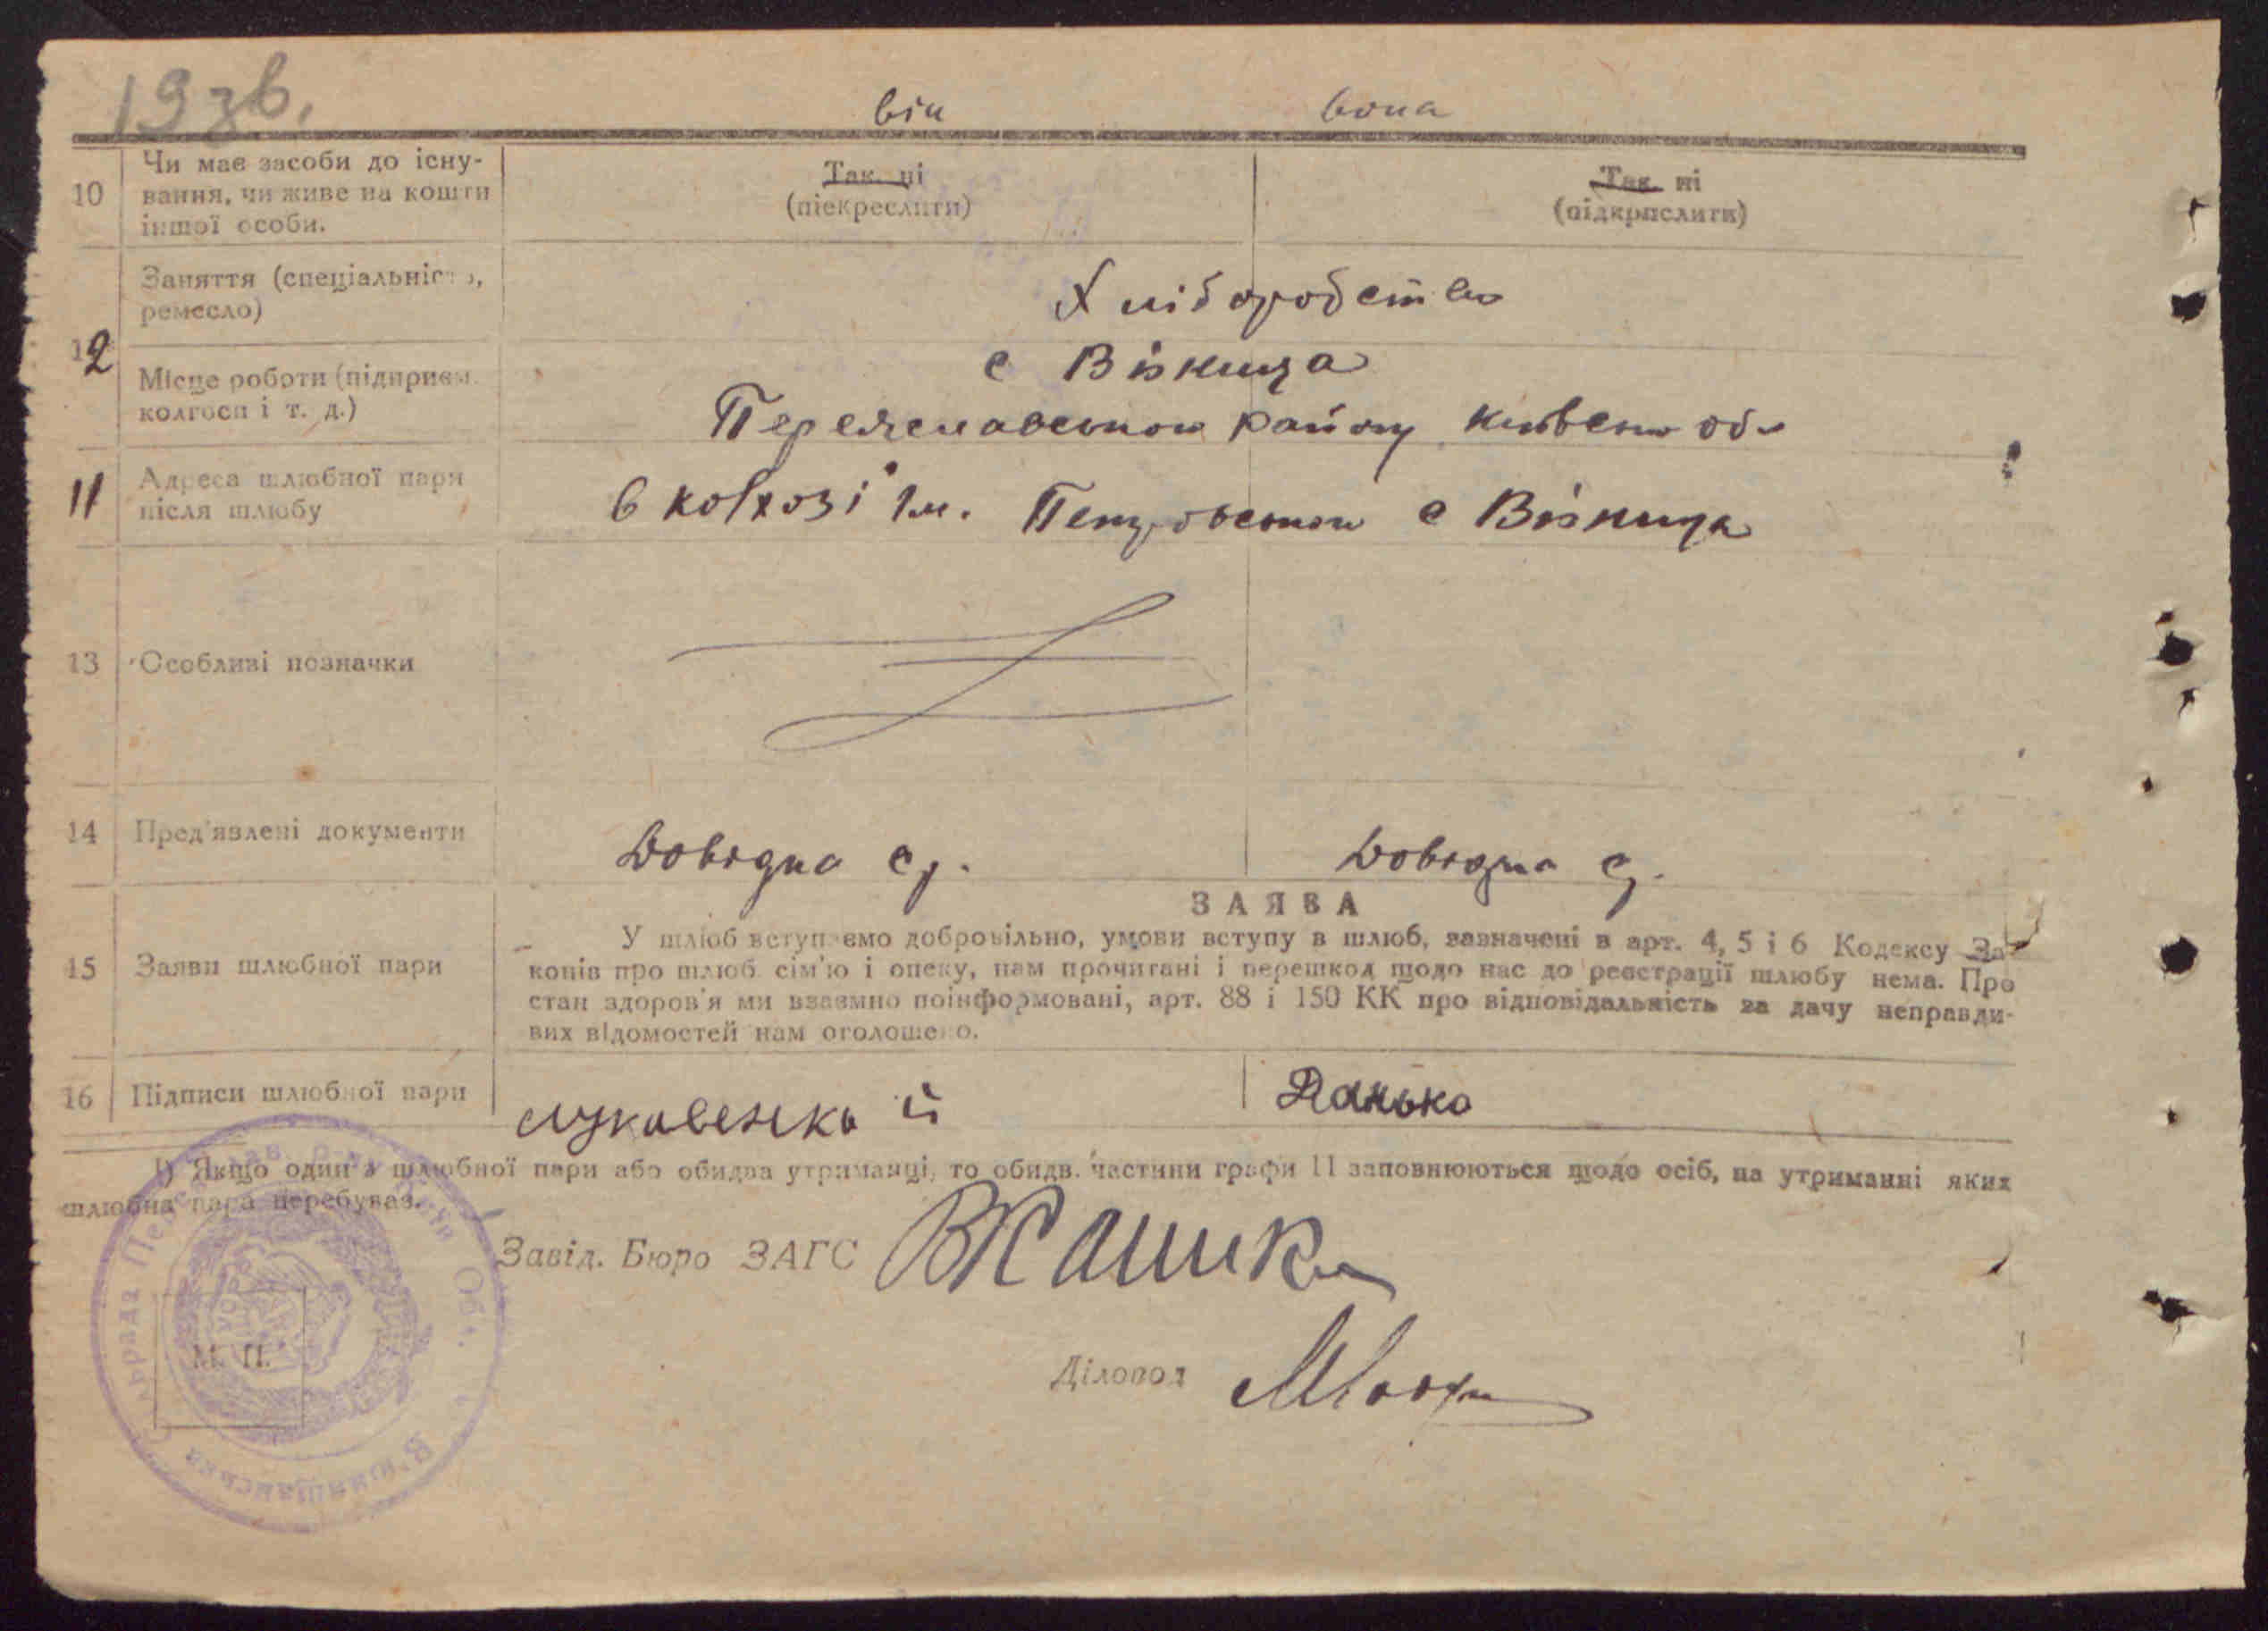 19зв.
він вона
10 Чи має засоби до існу-
вання, чи живе на кошти
іншої особи.
Так. ні
(піекреслити)
Так. ні
(підкрпслити)
Заняття (спеціальність,
ремесло)
Хліборобство
12
Місце роботи (підприєм.
колгосп і т. д.)
с Візниця
Переяславського району Київської обл
11 Адреса шлюбної пари
після шлюбу
в колхозі ім. Петровського с Візниця
13 Особливі позначки
14 Пред'явлені документи
Довідка ср. Довідка ср.
15 Заяви шлюбної пари
ЗАЯВА
У шлюб вступаємо добровільно, умови вступу в шлюб, зазначені в арт. 4, 5 і 6 Кодексу За-
конів про шлюб. сім'ю і опеку, нам прочитані і перешкод щодо нас до реєстрації шлюбу нема. Про
стан здоров'я ми взаємно поінформовані, арт. 88 і 150 КК про відповідальність за дачу неправди-
вих відомостей нам оголошено.
16 Підписи шлюбної пари
Луковенко й Данько
1) Якщо один з шлюбної пари або обидва утриманці, то обидв. частини графи 11 заповнюються щодо осіб, на утриманні яких
шлюбна пара перебуває.
Завід. Бюро ЗАГС
Діловод
М. П.